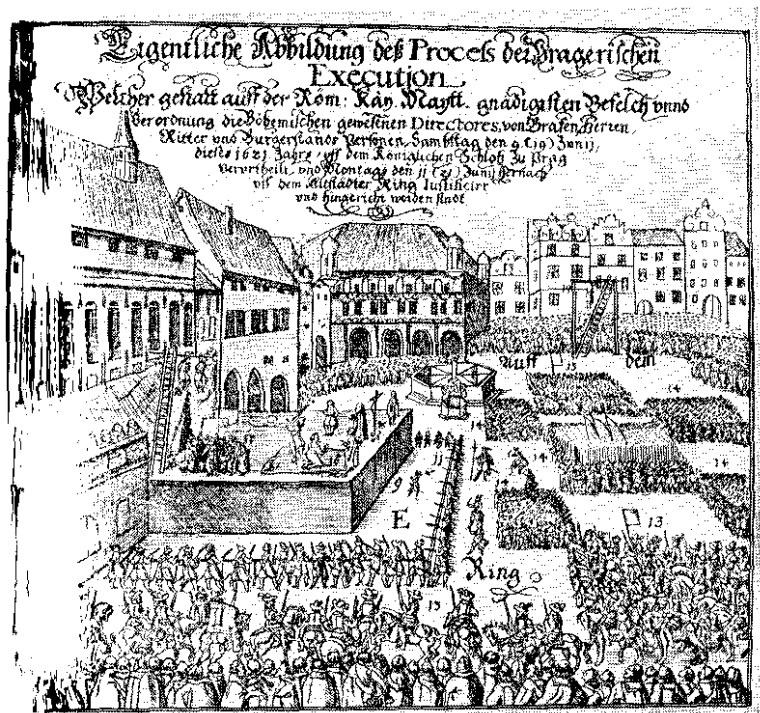 Eigentliche Abbildung deß Process der Pragerischen
Execution
Welcher gestalt auff der Röm: Käy. Maytt. gnädigisten Befelch vnnd
Verordnung die Böhemischen gewesenen Directores, von Grafen Herren,
Ritter vnd Burgerstands Personen, Sambstag den 9 (19) Junij,
dieses 1621 Jahrs, vff dem Königlichen Schloß zu Prag
Verurtheilt, vnd Montags den 11 (21) Junij hernach
vff dem Altstädter Ring
vnd hingericht worden sindt
Auff dem
15
14
14
14
14
11
9
E
13
Ring
13